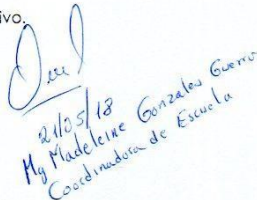 ivo.
21/05/18
Mg Madeleine Gonzales Guerro
Coordinadora de Escuela